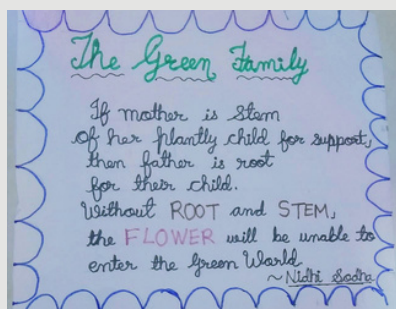 The Green Family
If mother is Stem
Of her plantly child for support,
then father is root
for their child.
Without ROOT and STEM,
the FLOWER will be unable to
enter the Green World
~ Nidhi Sodha